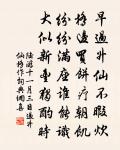 早過升仙不暇炊
橋邊買餅療朝飢
紛紛滿座誰能識
大似新豐獨酌時
陸游十一月三日過升
仙橋作詞典網書